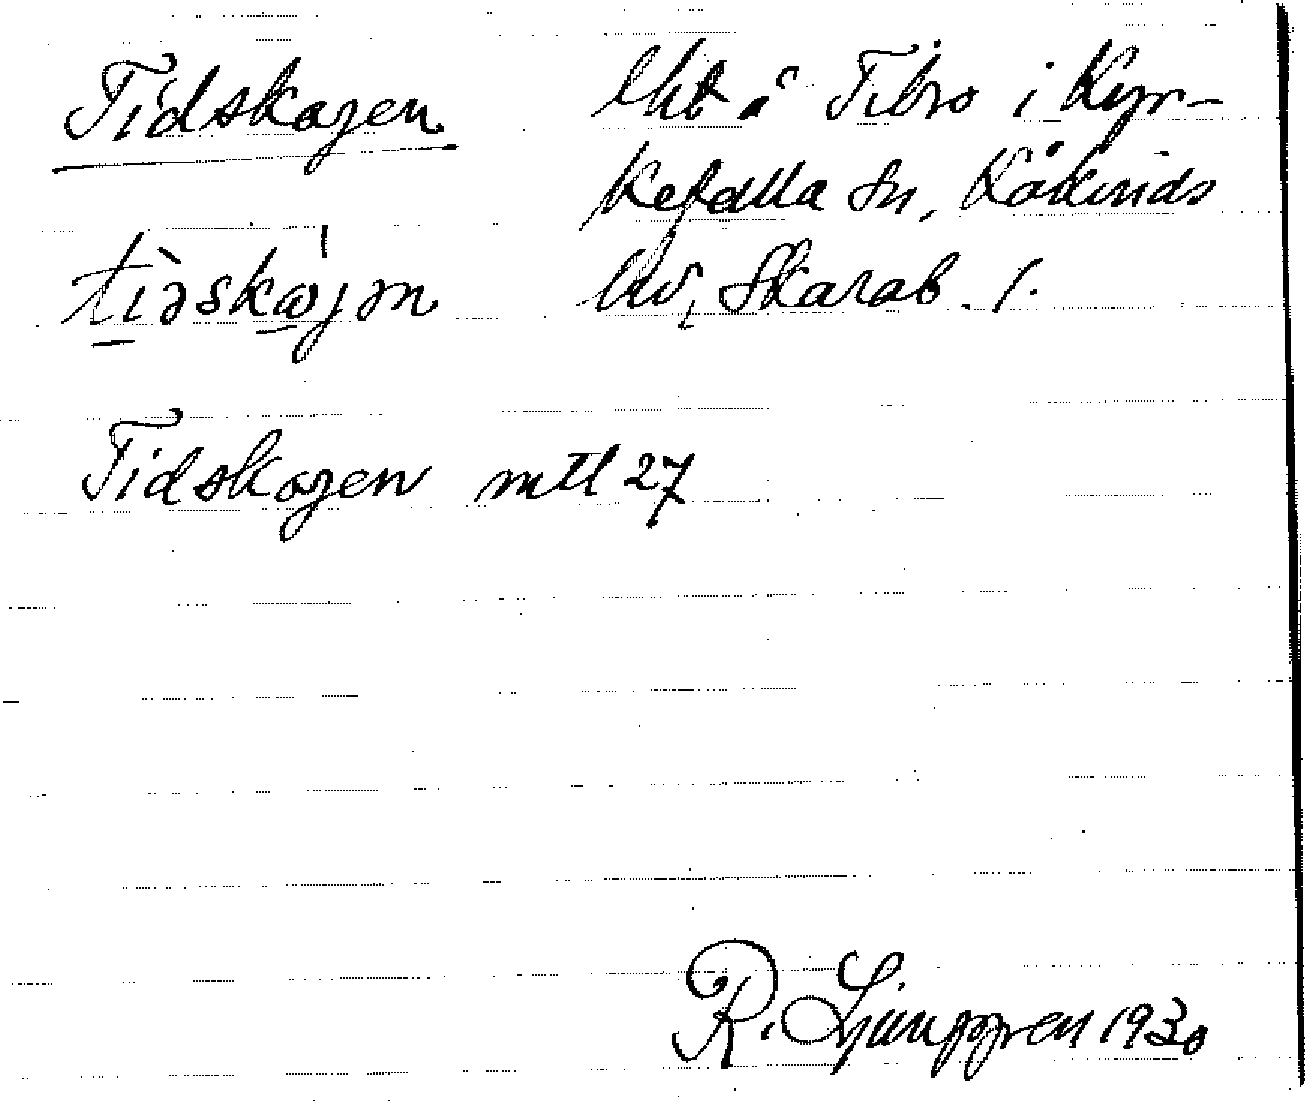 Tidskogen
lht å Tibro i Kyr-
kefalla sn, Kåkinds
hd, Skarab. l.
Tidskogen mtl 27
R. Ljunggren 1930